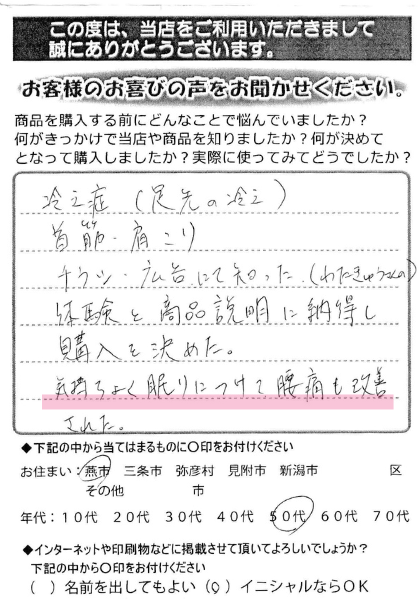 この度は、当店をご利用いただきまして
誠にありがとうございます。
お客様のお喜びの声をお聞かせください。
商品を購入する前にどんなことで悩んでいましたか？
何がきっかけで当店や商品を知りましたか？何が決めて
となって購入しましたか？実際に使ってみてどうでしたか？
冷え症（足先の冷え）
首筋・肩こり
チラシ・広告にて知った（わたきゅうさんの）
体験と商品説明に納得し
購入を決めた。
気持ちよく眠りにつけて腰痛も改善
された。
◆下記の中から当てはまるものに〇印をお付けください
お住まい：燕市 三条市 弥彦村 見附市 新潟市 区
その他 市
年代：10代 20代 30代 40代 50代 60代 70代
◆インターネットや印刷物などに掲載させて頂いてよろしいでしょうか？
下記の中から〇印をお付けください
（ ）名前を出してもよい（〇）イニシャルならOK